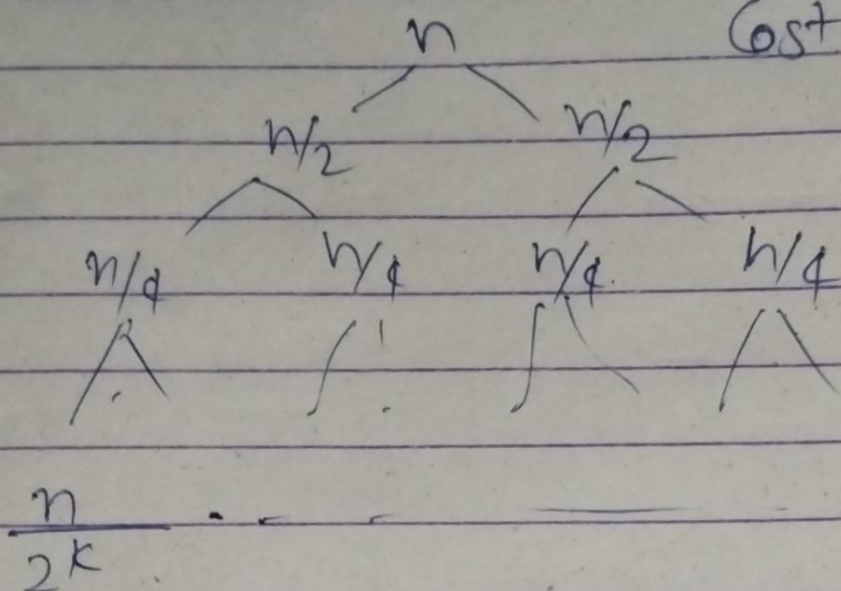 n Cost
n/2 n/2
n/4 n/4 n/4 n/4
n
2^k